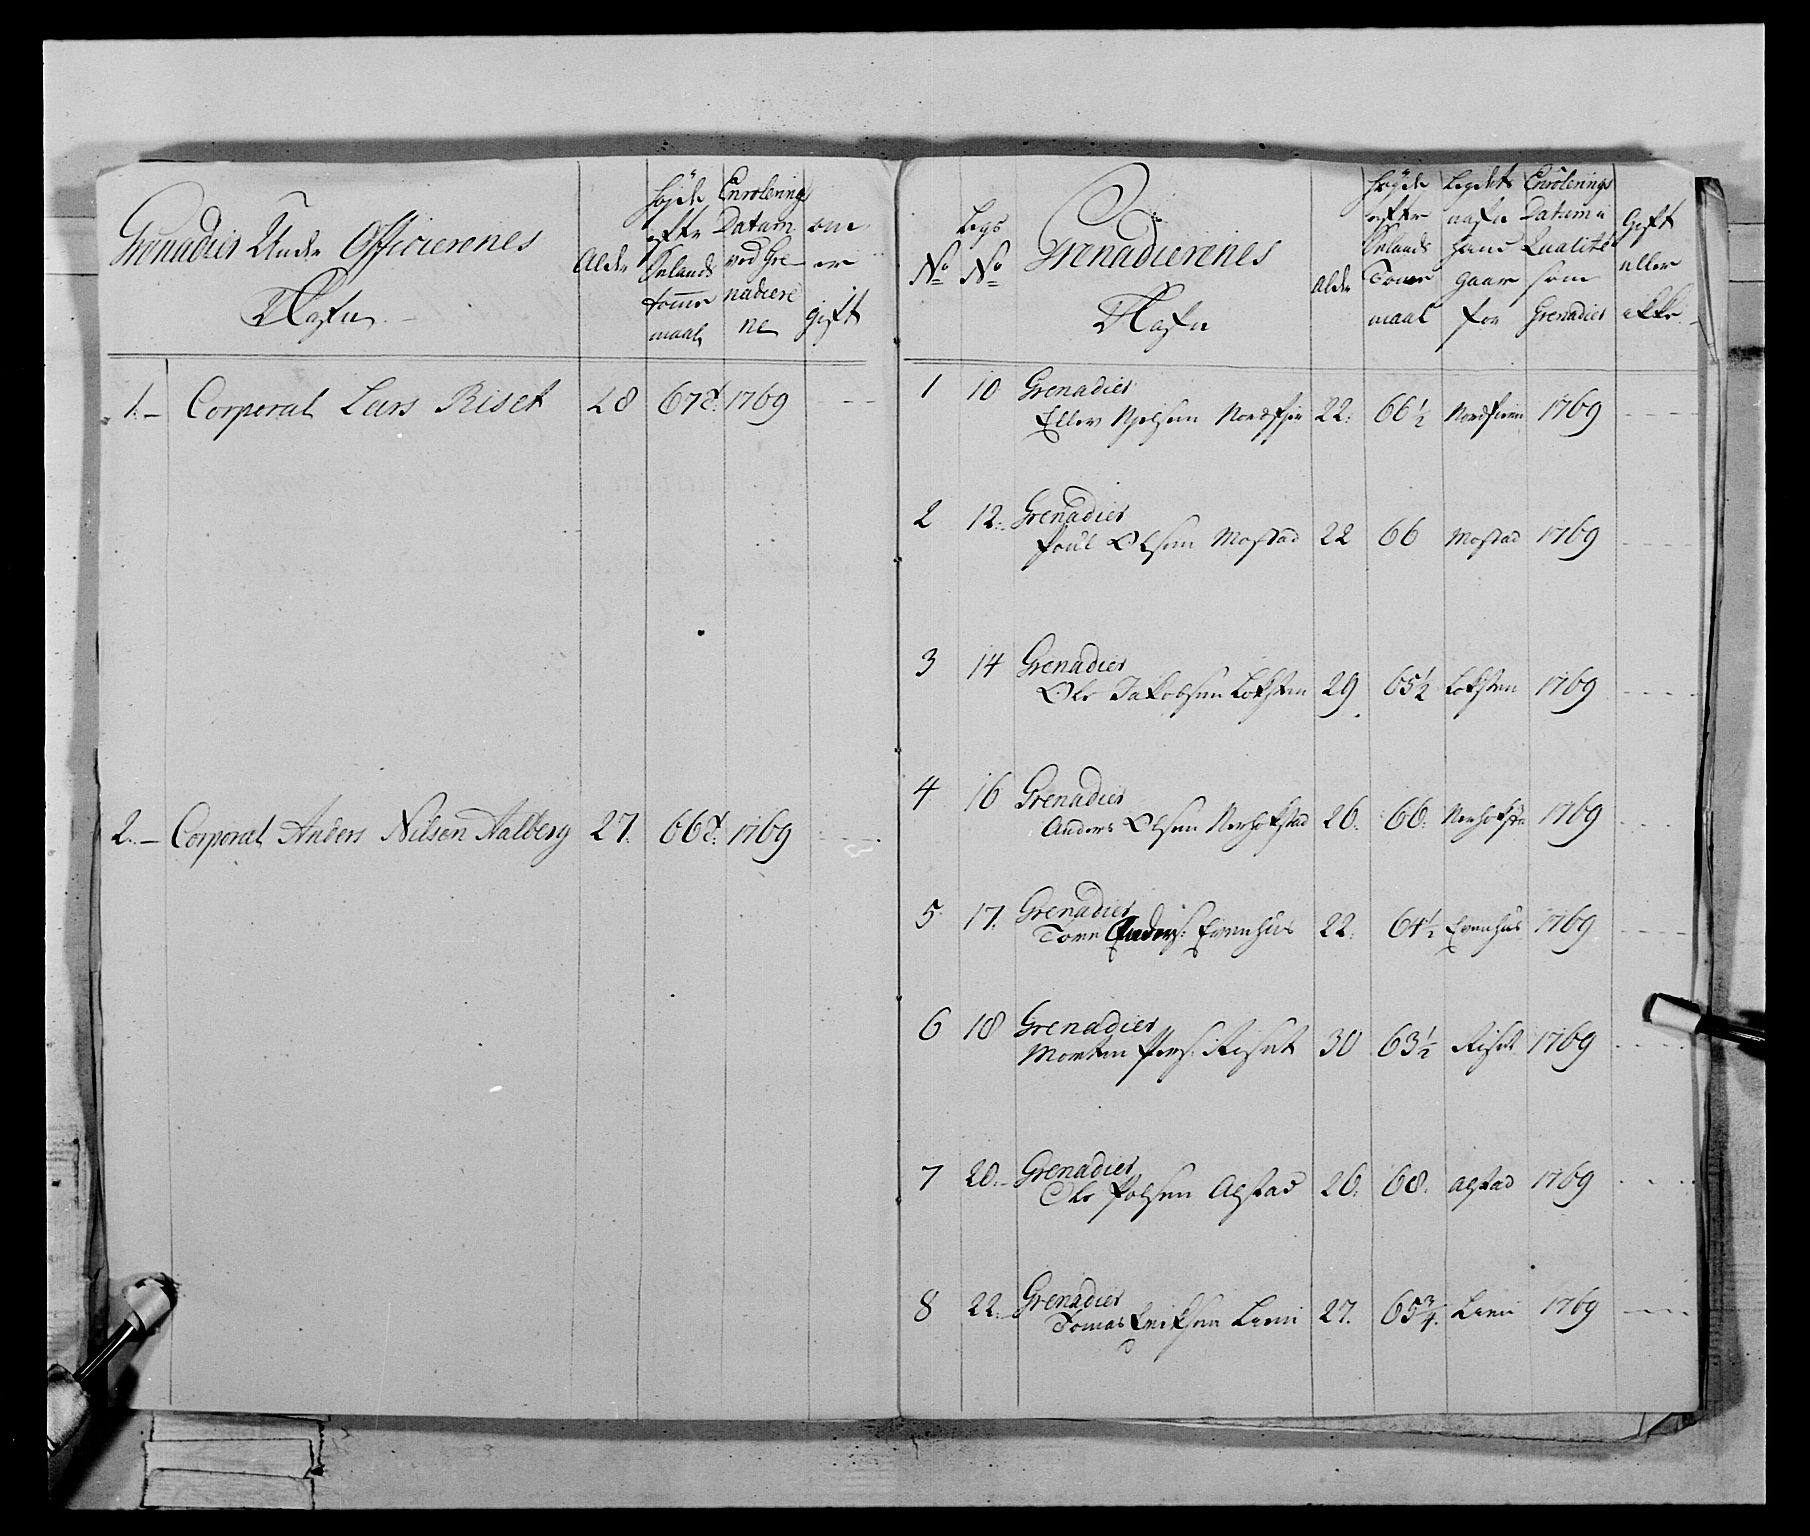 Grenadier Under Officierenes
Nafn
Alder
Højde efter Sælands tomme maal
Enrolering Datum ved Grenadierene
om er gift
1. Corporal Lars Riset 28 67 1769
2. Corporal Anders Nilsen Aalberg 27. 66 1769
No
Legs No
Grenadierenes
Nafn
Alder
Højde efter Sælands Tome maal
Legdets nafn hand gaar for
Enrolerings Datum i Qualité som Grenadier
Gift eller ikke
1 10 Grenadier
Eller Nordfjer 22: 66 1/2 1769
2 12. Grenadier
Poul Olsen Mostad 22 66 Mostad 1769
3 14 Grenadier
Ole Jakobsen Loksten 29 65 1/2 Loksten 1769
4 16 Grenadier
Anders Olsen Nerhofstad 26. 66. 1769
5 17. Grenadier
Tore Anders: Evenhus 22. 64 1/2 Evenhus 1769
6 18 Grenadier
Morten Pers: Riset 30 63 1/2 Riset 1769
7 20. Grenadier
Ole Polsen Alstad 26. 68. Alstad 1769
8 22. Grenadier
Tomas Eriksen 27. 65 3/4. 1769